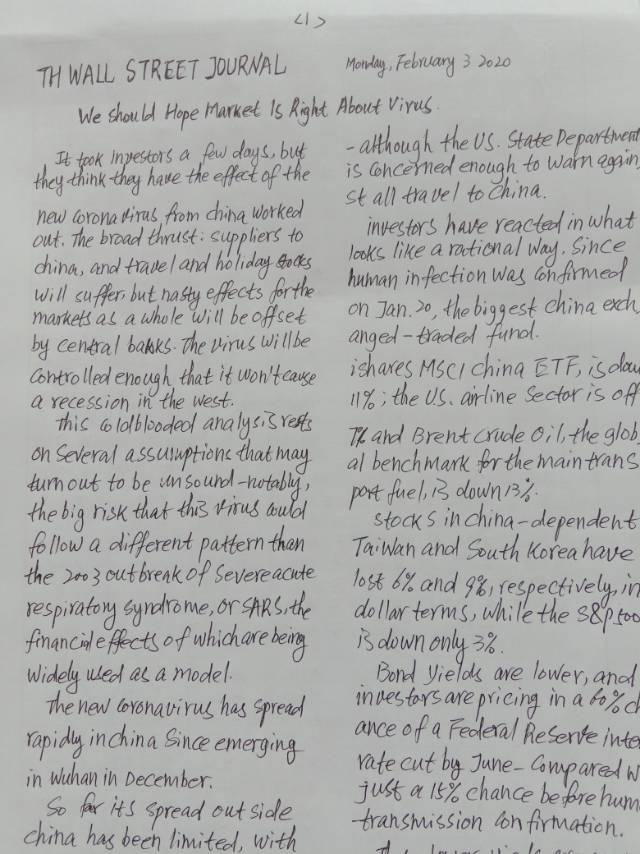 <1>
TH WALL STREET JOURNAL
Monday, February 3 2020
We should Hope Market Is Right About Virus.
It took investors a few days, but
they think they have the effect of the
new coronavirus from china worked
out. The broad thrust: suppliers to
china, and travel and holiday stocks
will suffer, but nasty effects for the
markets as a whole will be offset
by central banks. The virus will be
controlled enough that it won't cause
a recession in the west.
This coldblooded analysis rests
on several assumptions that may
turn out to be unsound-notably,
the big risk that this virus could
follow a different pattern than
the 2003 outbreak of severe acute
respiratory syndrome, or SARS, the
financial effects of which are being
widely used as a model.
The new coronavirus has spread
rapidly in china since emerging
in Wuhan in December.
So far its spread out side
china has been limited, with
- although the US. State Department
is concerned enough to warn again
st all travel to China.
investors have reacted in what
looks like a rational way. Since
human infection was confirmed
on Jan. 20, the biggest china exch
anged-traded fund.
ishares MSCI china ETF, is dow
11%; the US. airline sector is off
7% and Brent crude Oil, the glob
al benchmark for the main trans
port fuel, is down 13%.
stocks in china-dependent
Taiwan and South Korea have
lost 6% and 9%, respectively, in
dollar terms, while the S&P 500
is down only 3%.
Bond yields are lower, and
investors are pricing in a 60% ch
ance of a Federal Reserve inte
rate cut by June- compared w
just a 15% chance before hum
transmission confirmation.